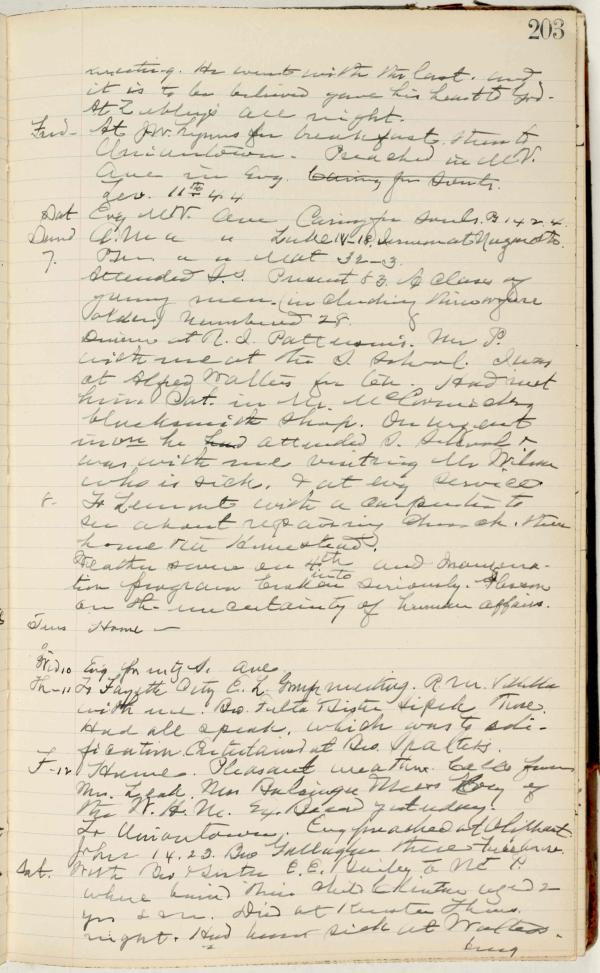 203
meeting. He went with the last. and
it is to be believed gave his heart to God.
At all night.
Frid - At for breakfast. Then to
Uniontown. Preached in Mt V.
Ave in Evg. Caring for Souls.
Lev. 11th 44
Sat Evg Mt V. Ave Caring for Souls. Ps 142.4.
A.M. " " Luke 14-18. Sermon at Nazareth.
7. P.M. " " Mat 32-3.
Attended S.S. Present 83. A class of
young men. (including those
older) numbered 28.
Dinner at R. I. Patterson's. Mr P.
with me at the S. School. I was
at Alfred Walters for tea. Had met
him Sat. in Mr. McCormicks
blacksmith shop. On urgent
he had attended S. School &
was with me visiting Mr Wilson
who is sick. & at evg service
8. To Lemont with a carpenter to
see about repairing Church. then
home via Homestead.
Weather severe on 4th and Inaugura-
tion program broken into seriously. A lesson
on the uncertainty of human affairs.
Tues Home -
Wed 10 Evg pr mtg S. Ave.
Th - 11 To Fayette City E. L. Group meeting. R.M.
with me. Bro. Fulta Sister Sipek
Had all speak, which was to edi-
fication. Entertained at Bro.
F - 12 Home. Pleasant weather. Calls from
Mrs. Leak, Mrs of
the W. H. M. Ex. Board yesterday.
To Uniontown. Evg preached at Oliphant.
John 14.23. Bro Gallagher there
Sat. With Bro & Sister E. E. Bailey to Mt P.
where buried their child aged 2
yrs Died at Thurs.
night. Had been sick at